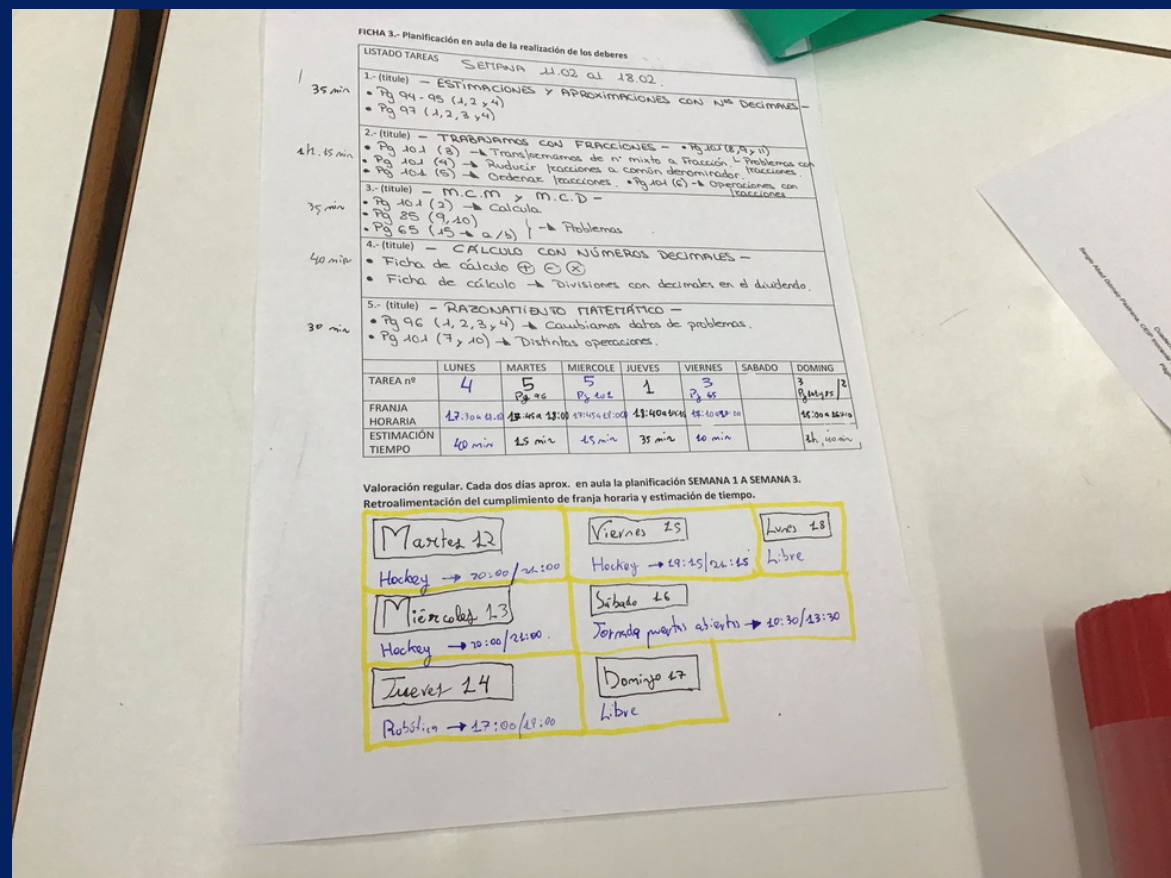 FICHA 3.- Planificación en aula de la realización de los deberes
LISTADO TAREAS SEMANA 11.02 al 18.02.
35 min
1.- (titule) - ESTIMACIONES Y APROXIMACIONES CON Nos DECIMALES -
• Pg 94-95 (1, 2 y 4)
• Pg 97 (1, 2, 3 y 4)
1h. 15 min
2.- (titule) - TRABAJAMOS CON FRACCIONES - • Pg 101 (8, 9 y 11)
• Pg 101 (3) → Transformamos de nº mixto a Fracción. Problemas con
• Pg 101 (4) → Reducir fracciones a común denominador. fracciones.
• Pg 101 (5) → Ordenar fracciones. • Pg 101 (6) → Operaciones con
fracciones
35 min
3.- (titule) - M.C.M y M.C.D -
• Pg 101 (2) → Calcula
• Pg 85 (9, 10)
• Pg 65 (15 → a/b) } → Problemas
40 min
4.- (titule) - CÁLCULO CON NÚMEROS DECIMALES -
• Ficha de cálculo + - x
• Ficha de cálculo → Divisiones con decimales en el dividendo.
30 min
5.- (titule) - RAZONAMIENTO MATEMÁTICO -
• Pg 96 (1, 2, 3 y 4) → Cambiamos datos de problemas.
• Pg 101 (7 y 10) → Distintas operaciones.
LUNES MARTES MIERCOLE JUEVES VIERNES SABADO DOMING
TAREA nº 4 5 5 1 3 3 /2
Pg 96 Pg 101 Pg 65
FRANJA
HORARIA 17:45 a 18:00 17:45 a 18:00
ESTIMACIÓN
TIEMPO 40 min 15 min 15 min 35 min 10 min 1h, 40 min
Valoración regular. Cada dos días aprox. en aula la planificación SEMANA 1 A SEMANA 3.
Retroalimentación del cumplimiento de franja horaria y estimación de tiempo.
Martes 12
Hockey → 20:00/21:00
Viernes 15
Hockey → 19:15/21:15
Lunes 18
Libre
Miércoles 13
Hockey → 20:00/21:00.
Sábado 16
Jornada puertas abiertas → 10:30/13:30
Jueves 14
Robótica → 17:00/19:00
Domingo 17
Libre